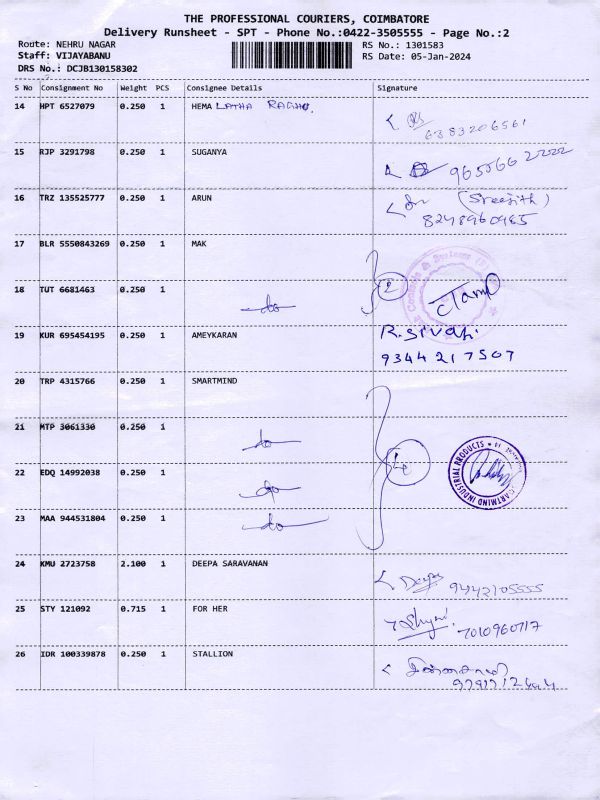 THE PROFESSIONAL COURIERS, COIMBATORE
Delivery Runsheet - SPT - Phone No.:0422-3505555 - Page No.:2
Route: NEHRU NAGAR RS No.: 1301583
Staff: VIJAYABANU RS Date: 05-Jan-2024
DRS No.: DCJB130158302
S No Consignment No Weight PCS Consignee Details Signature
14 HPT 6527079 0.250 1 HEMA LATHA RAGHU
6383206561
15 RJP 3291798 0.250 1 SUGANYA
16 TRZ 135525777 0.250 1 ARUN (Sreejith)
8248960985
17 BLR 5550843269 0.250 1 MAK
18 TUT 6681463 0.250 1 do 2
19 KUR 695454195 0.250 1 AMEYKARAN
9344217507
20 TRP 4315766 0.250 1 SMARTMIND
21 MTP 3061330 0.250 1 do
22 EDQ 14992038 0.250 1 do
INDUSTRIAL PRODUCTS
23 MAA 944531804 0.250 1 do
24 KMU 2723758 2.100 1 DEEPA SARAVANAN Deepa 9442105555
25 STY 121092 0.715 1 FOR HER 7010960717
26 IDR 100339878 0.250 1 STALLION